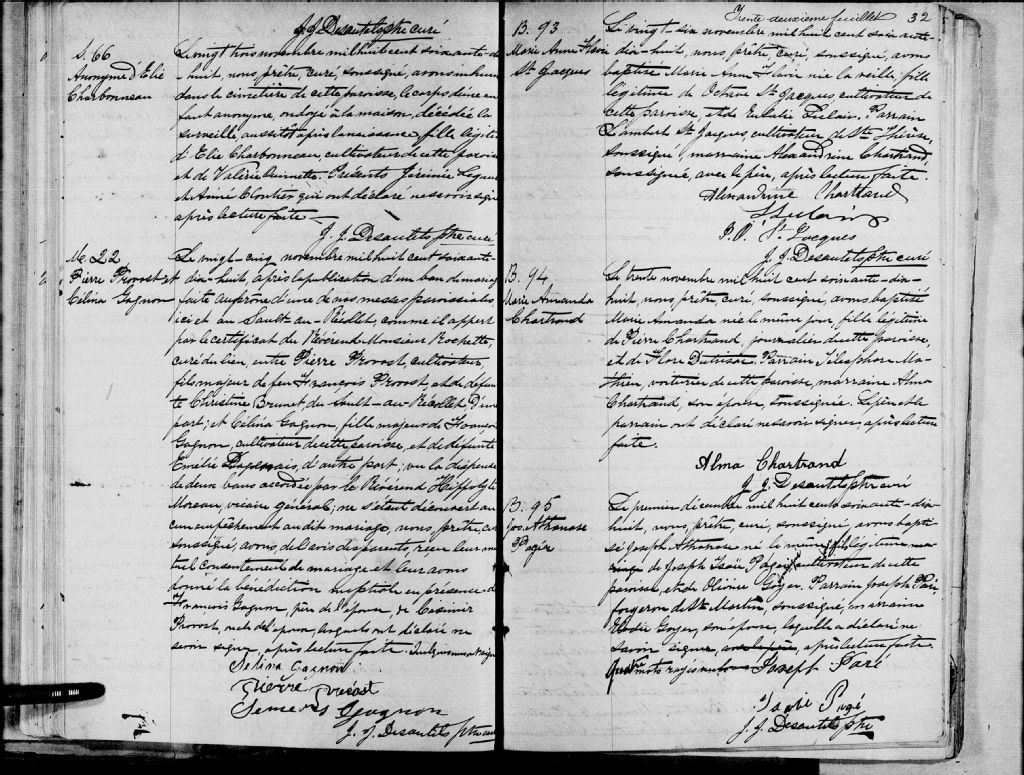 J. J. Desautels ptre curé
S. 66
Anonyme d'Elie
Charbonneau
Le vingt trois novembre mil huit cent soixante-dix
-huit, nous, prêtre, curé, soussigné, avons inhumé
dans le cimetière de cette paroisse, le corps d'une en
fant anonyme, ondoyé à la maison, décédée la
surveille, aussitôt après la naissance, fille légitime
d'Elie Charbonneau, cultivateur de cette paroisse
et de Valérie Ouimette. Présents Jérémie
et Aimé Cloutier qui ont déclaré ne savoir signer
après lecture faite.
J. J. Desautels ptre curé
M. 22
Pierre Provost et
Célina Gagnon
Le vingt-cinq novembre mil huit cent soixante-
dix-huit, après la publication d'un ban de mariage
faite au prône d'une de nos messes paroissiales,
ici et au Sault-au-Récollet, comme il appert
par le certificat du Révérend Monsieur Rochette,
curé du lieu, entre Pierre Provost, cultivateur,
fils majeur de feu François Provost, et de défun
te Christine Brunet, du Sault-au-Récollet D'une
part; et Célina Gagnon, fille majeur de François
Gagnon, cultivateur de cette paroisse, et de défunte
Emélie Dagenais, d'autre part; vu la dispense
de deux bans accordée par le Révérend Hippolyte
Moreau, vicaire général; ne s'étant découvert au
cun empêchement au dit mariage, nous, prêtre, curé
soussigné, avons, de l'avis des parents, reçu leur mu
tuel consentement de mariage et leur avons
donné la bénédiction nuptiale en présence de
François Gagnon, père de l'épouse, de Casimir
Provost, de l'époux, lesquels ont déclaré ne
savoir signer, après lecture faite.
Celina Gagnon
Pierre Prévost
Gagnon
J. J. Desautels ptre curé
Trente deuxième feuillet 32
B. 93
Marie Anne Flavie
St Jacques
Le vingt-six novembre mil huit cent soixante
dix-huit, nous, prêtre, curé, soussigné, avons
baptisé Marie Anne Flavie née la veille, fille
légitime de Octave St Jacques, cultivateur de
cette paroisse, et de Eulalie. Parrain
Lambert St Jacques cultivateur de Ste Thérèse,
soussigné, marraine Alexandrine Chartrand,
soussignée, avec le père, après lecture faite.
Alexandrine Chartrand
St Jacques
J. J. Desautels ptre curé
B. 94
Marie Amanda
Chartrand
Le trente novembre mil huit cent soixante-dix-
huit, nous, prêtre, curé, soussigné, avons baptisé
Marie Amanda née le même jour, fille légitime
de Pierre Chartrand, journalier de cette paroisse,
et de Flore Dutrisac. Parrain Télesphore Ma-
thieu, voiturier de cette paroisse, marraine Alma
Chartrand, son épouse, soussignée. Le père et le
parrain ont déclaré ne savoir signer après lecture
faite.
Alma Chartrand
J. J. Desautels ptre curé
B. 95
Jos. Athanase
Pagé
Le premier décembre mil huit cent soixante-dix-
huit, nous, prêtre, curé, soussigné, avons bapti
sé Joseph Athanase né le même jour, fils légitime
de Joseph Isaïe Pagé, cultivateur de cette
paroisse, et de Olivine Goyer. Parrain Joseph Paré,
forgeron de St Martin, soussigné, marraine
Elodie Goyer, son épouse, laquelle a déclaré ne
savoir signer, après lecture faite.
Quatre mots rayés nuls
Joseph Paré
Isaïe Pagé
J. J. Desautels ptre